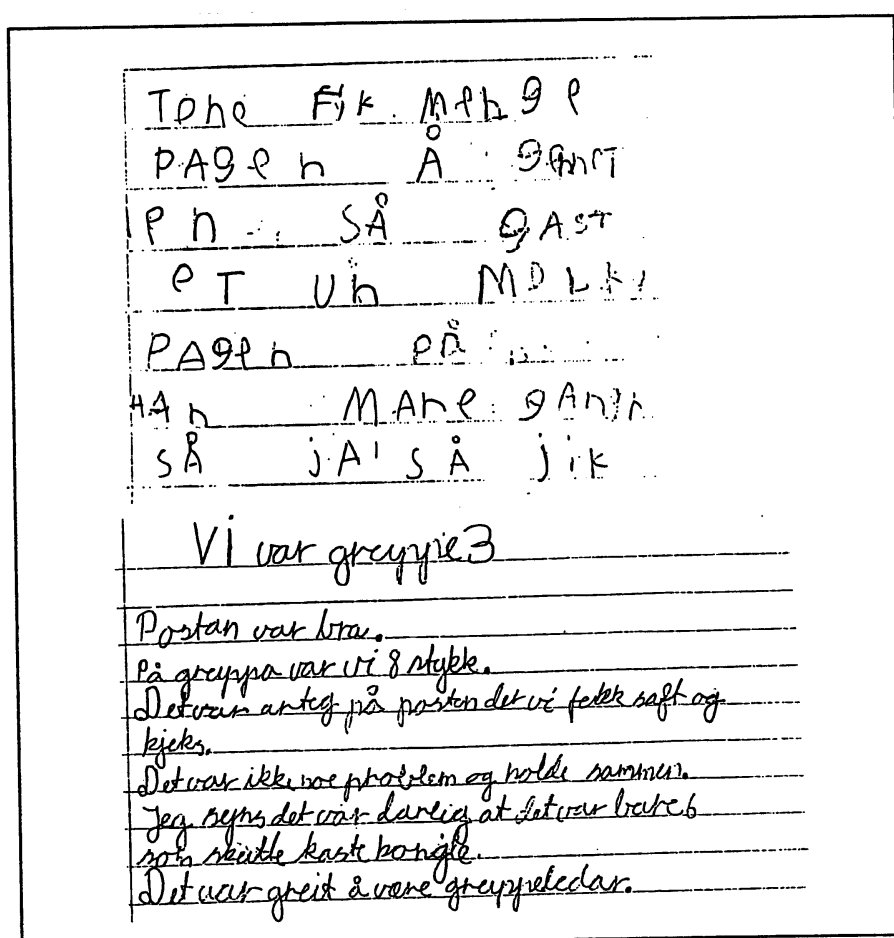 Tone Fik Menge
PAgen Å
en SÅ gAST
eT Uh MDLk
PAgen PÅ
HAn MAne gAnjn
SÅ jA' SÅ jik
Vi var gruppe 3
Postan var bra.
På gruppa var vi 8 stykk.
Det var arteg på posten der vi fekk saft og
kjeks.
Det var ikke noe problem og holde sammen.
Jeg syns det var darlig at det var bare 6
som skulle kaste kongle.
Det var greit å være gruppeledar.